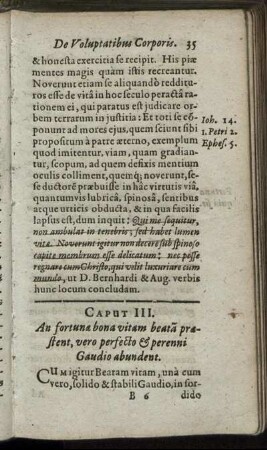 De Voluptatibus Corporis. 35
& honesta exercitia se recipit. His piæ
mentes magis quàm istis recreantur.
Noverunt etiam se aliquandò reddituros
ros esse de vitâ in hoc seculo peractâ ra-
rationem ei, qui paratus est judicare or-
bem terrarum in justitia: Et toti se cô-
ponunt ad mores ejus, quem sciunt sibi
propositum à patre æterno, exemplum
quod imitentur, viam, quam gradian-
tur, scopum, ad quem defixis mentium
oculis colliment, quemq; noverunt, se-
se ductorē præbuisse in hâc virtutis viâ,
quantumvis lubricâ, spinosâ, sentibus
atque urticis obductâ, & in qua facilis
lapsus est, dum inquit: Qui me sequitur,
non ambulat in tenebris, sed habet lumen
vitæ. Noverunt igitur non decere sub spinoso
capite membrum esse delicatum: nec posse
regnare cum Christo, qui velit luxuriare cum
mundo, ut D. Bernhardi & Aug. verbis
hunc locum concludam.
Joh. 14.
1. Petri 2.
Ephes. 5.
CAPUT III.
An fortuna bona vitam beatā præ-
stent, vero perfecto & perenni
Gaudio abundent.
CUM igitur Beatam vitam, unà cum
vero, solido & stabili Gaudio, in sor-
B 6 dido